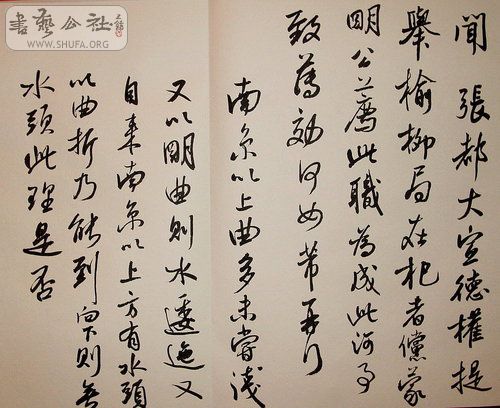 聞張都大宣德權提
舉榆柳局在杞者儻蒙
明公薦此職為成此河事
致舊効何如芾再行
南京以上曲多未嘗淺
又以明曲則水逶迤又
自來南京以上方有水頭
以曲折乃能到向下則無
水頭此理是否
書藝公社
WWW.SHUFA.ORG